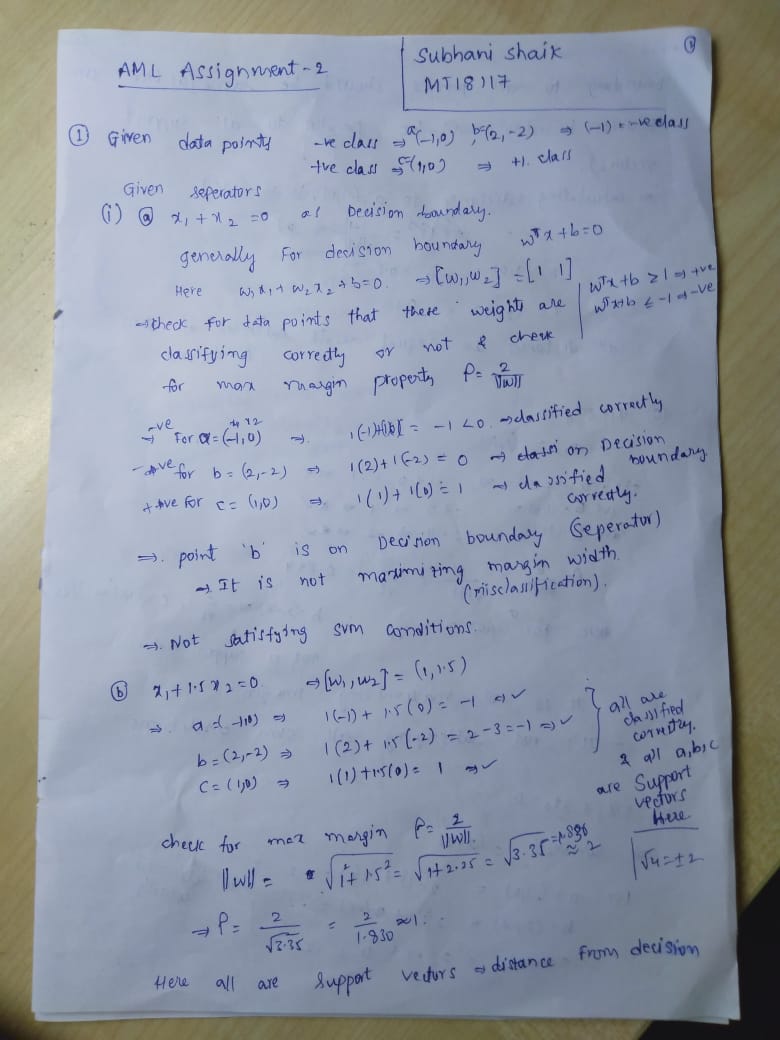 AML Assignment-2
Subhani Shaik
MT18117
① Given data points -ve class ⇒ a(-1,0), b=(2,-2) ⇒ (-1) = -ve class
+ve class ⇒ c=(1,0) ⇒ +1. class
Given seperators
(i) ⓐ x₁+x₂=0 as Decision boundary.
generally For decision boundary wᵀx+b=0
Here w₁x₁+w₂x₂+b=0. ⇒[w₁,w₂]=[1 1]
wᵀx+b ≥1 ⇒ +ve
wᵀx+b ≤ -1 ⇒ -ve
→ check for data points that there weights are
classifying correctly or not & check
for max margin property ρ= 2/||w||
-ve
⇒ For a=(-1,0) ⇒ = -1 <0. ⇒classified correctly
x1 x2
-ve for b=(2,-2) ⇒ 1(2)+1(-2) = 0 → on Decision
boundary.
+ve for c=(1,0) ⇒ 1(1)+1(0)=1 → classified
correctly.
⇒. point 'b' is on Decision boundary (seperator)
→ It is not maximizing margin width.
(misclassification).
⇒. Not satisfying SVM conditions.
ⓑ x₁+1.5x₂=0. ⇒[w₁,w₂]=(1,1.5)
⇒. a=(-1,0) ⇒ 1(-1)+1.5(0)=-1 ⇒✓
b=(2,-2) ⇒ 1(2)+1.5(-2)=2-3=-1⇒✓
c=(1,0) ⇒ 1(1)+1.5(0)=1 ⇒✓
all are
classified
correctly.
& all a,b,c
are Support
vectors
Here
check for max margin ρ= 2/||w||.
||w||= √1²+1.5² = √1+2.25 = √3.35 =1.830 ≈ 2
√4=±2
⇒ρ= 2/√3.35 = 2/1.830 ≈1.
Here all are Support vectors ⇒ distance from decision